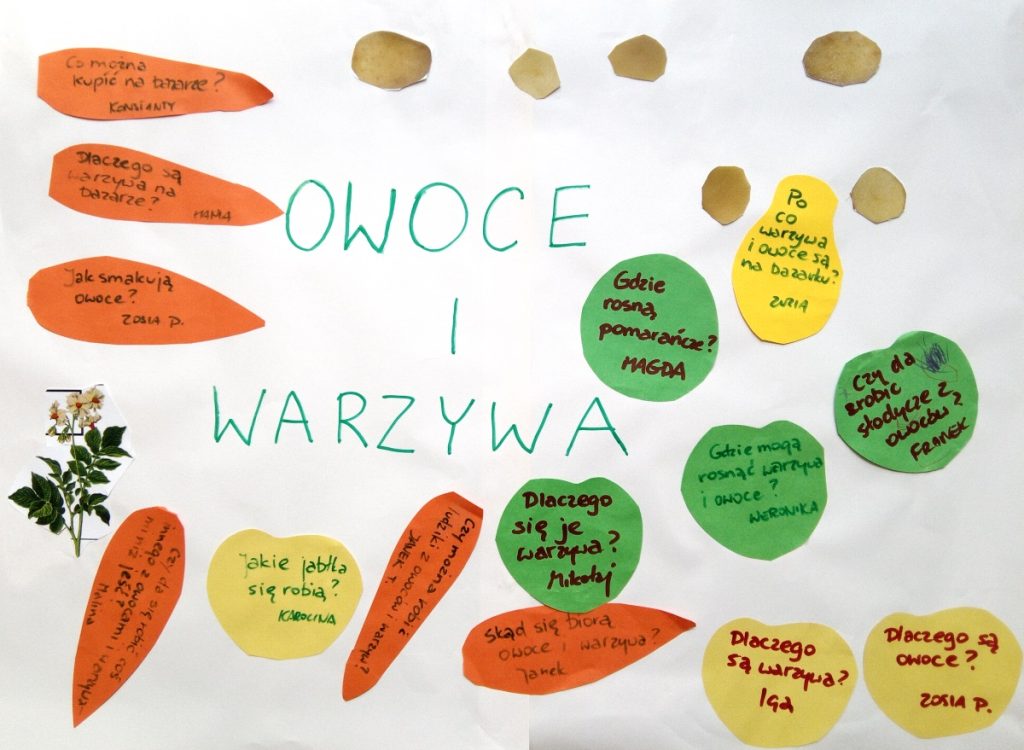 Co można
kupić na bazarze?
KONSTANTY
Dlaczego są
warzywa na
bazarze?
HANIA
Jak smakują
owoce?
ZOSIA P.
OWOCE
I
WARZYWA
Po
co
warzywa
i owoce są
na bazarku?
ZUZIA
Gdzie
rosną
pomarańcze?
MAGDA
Czy da
zrobić
słodycze z
owoców?
FRANEK
Gdzie mogą
rosnąć warzywa
i owoce?
WERONIKA
Dlaczego
się je
warzywa?
Mikołaj
Czy da się robić coś
innego z owocami i warzywa-
mi niż jeść?
Malina
Jakie jabłka
się robią?
KAROLINA
Czy można robić
ludziki z owoców i warzyw?
JANEK T.
Skąd się biorą
owoce i warzywa?
Janek
Dlaczego
są warzywa?
Iga
Dlaczego są
owoce?
ZOSIA P.